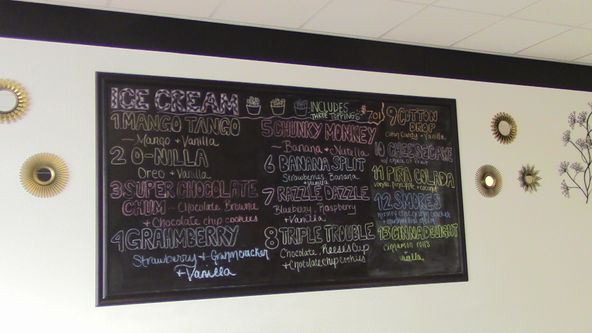 ICE CREAM
INCLUDES
THREE TOPPINGS
1 MANGO TANGO
Mango + Vanilla
2 O-NILLA
Oreo + Vanilla
3 SUPER CHOCOLATE
CHUM - Chocolate, Brownie
+ Chocolate chip cookies
4 GRAHMBERRY
Strawberry + Grahmcracker
+ Vanilla
5 CHUNKY MONKEY
Banana + Nutella
6 BANANA SPLIT
Strawberries, Banana
7 RAZZLE DAZZLE
Blueberry, Raspberry
+ Vanilla
8 TRIPLE TROUBLE
Chocolate, Reese's Cup
+ Chocolate chip cookies
9 COTTON
DROP
Cotton Candy + Vanilla
10 CHEESECAKE
11 PINA COLADA
12 SMORES
13 CINNADELIGHT
cinnamon rolls
vanilla